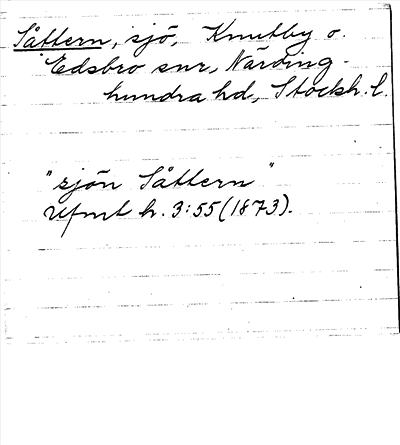 Såttern, sjö, Knutby o.
Edsbro snr, Närding-
hundra hd, Stockh. l.
"sjön Såttern"
Ufmt h. 3:55 (1873).